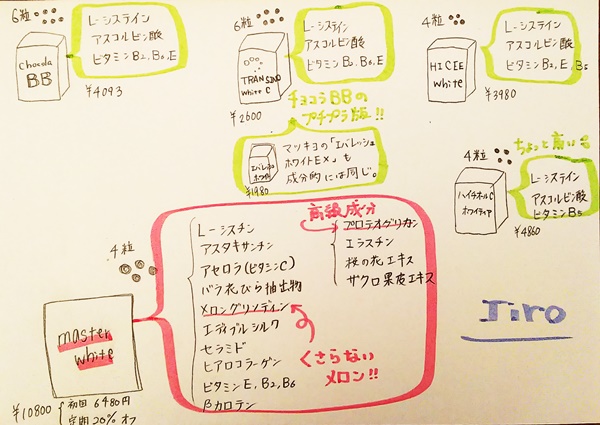 6粒
Chocola
BB
L-システイン
アスコルビン酸
ビタミンB2, B6, E
¥4093
6粒
TRANSINO
White C
L-システイン
アスコルビン酸
ビタミンB2, B6, E
¥2600
チョコラBBの
プチプラ版!!
エバレッシュ
ホワイト
マツキヨの「エバレッシュ
ホワイトEX」も
成分的には同じ。
¥1980
4粒
HICEE
White
L-システイン
アスコルビン酸
ビタミンB2, E, B5
¥3980
ちょっと高い
4粒
ハイチオールC
ホワイティア
L-システイン
アスコルビン酸
ビタミンB5
¥4860
4粒
master
white
¥10800
初回 6480円
定期 20% オフ
L-シスチン
アスタキサンチン
アセロラ(ビタミンC)
バラ花びら抽出物
メロングリソディン
エディブルシルク
セラミド
ヒアロコラーゲン
ビタミンE, B2, B6
βカロテン
高級成分
プロテオグリカン
エラスチン
桜の花エキス
ザクロ果皮エキス
くさらない
メロン!!
Jiro